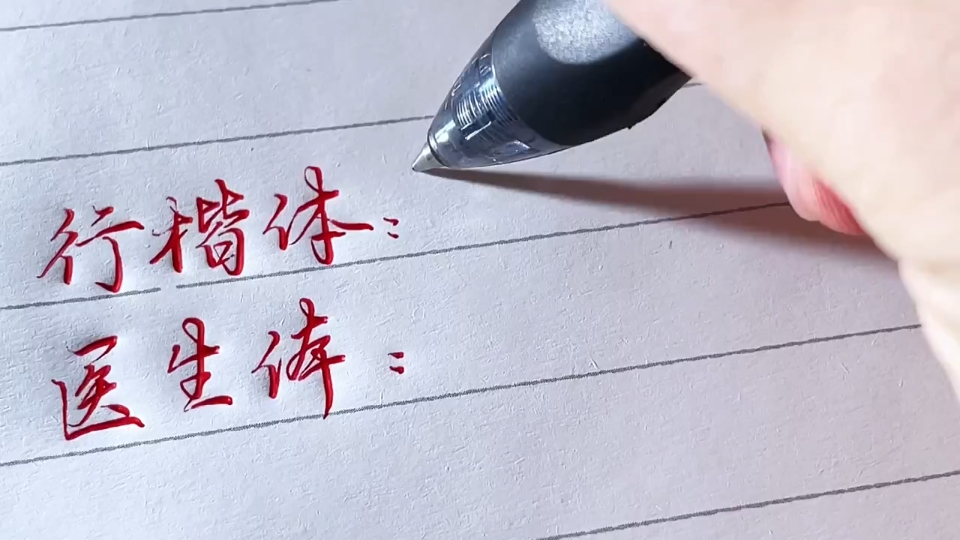 行楷体：
医生体：